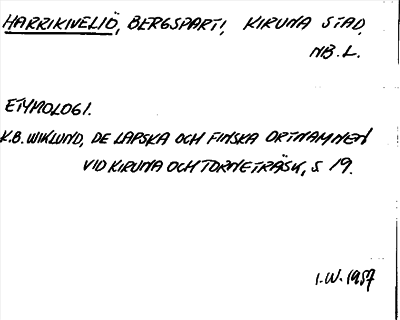 HARRIKIVELIÖ, BERGSPARTI, KIRUNA STAD,
NB. L.
ETYMOLOGI.
K.B. WIKLUND, DE LAPSKA OCH FINSKA ORTNAMNEN
VID KIRUNA OCH TORNETRÄSK, S. 19.
I.W. 1957